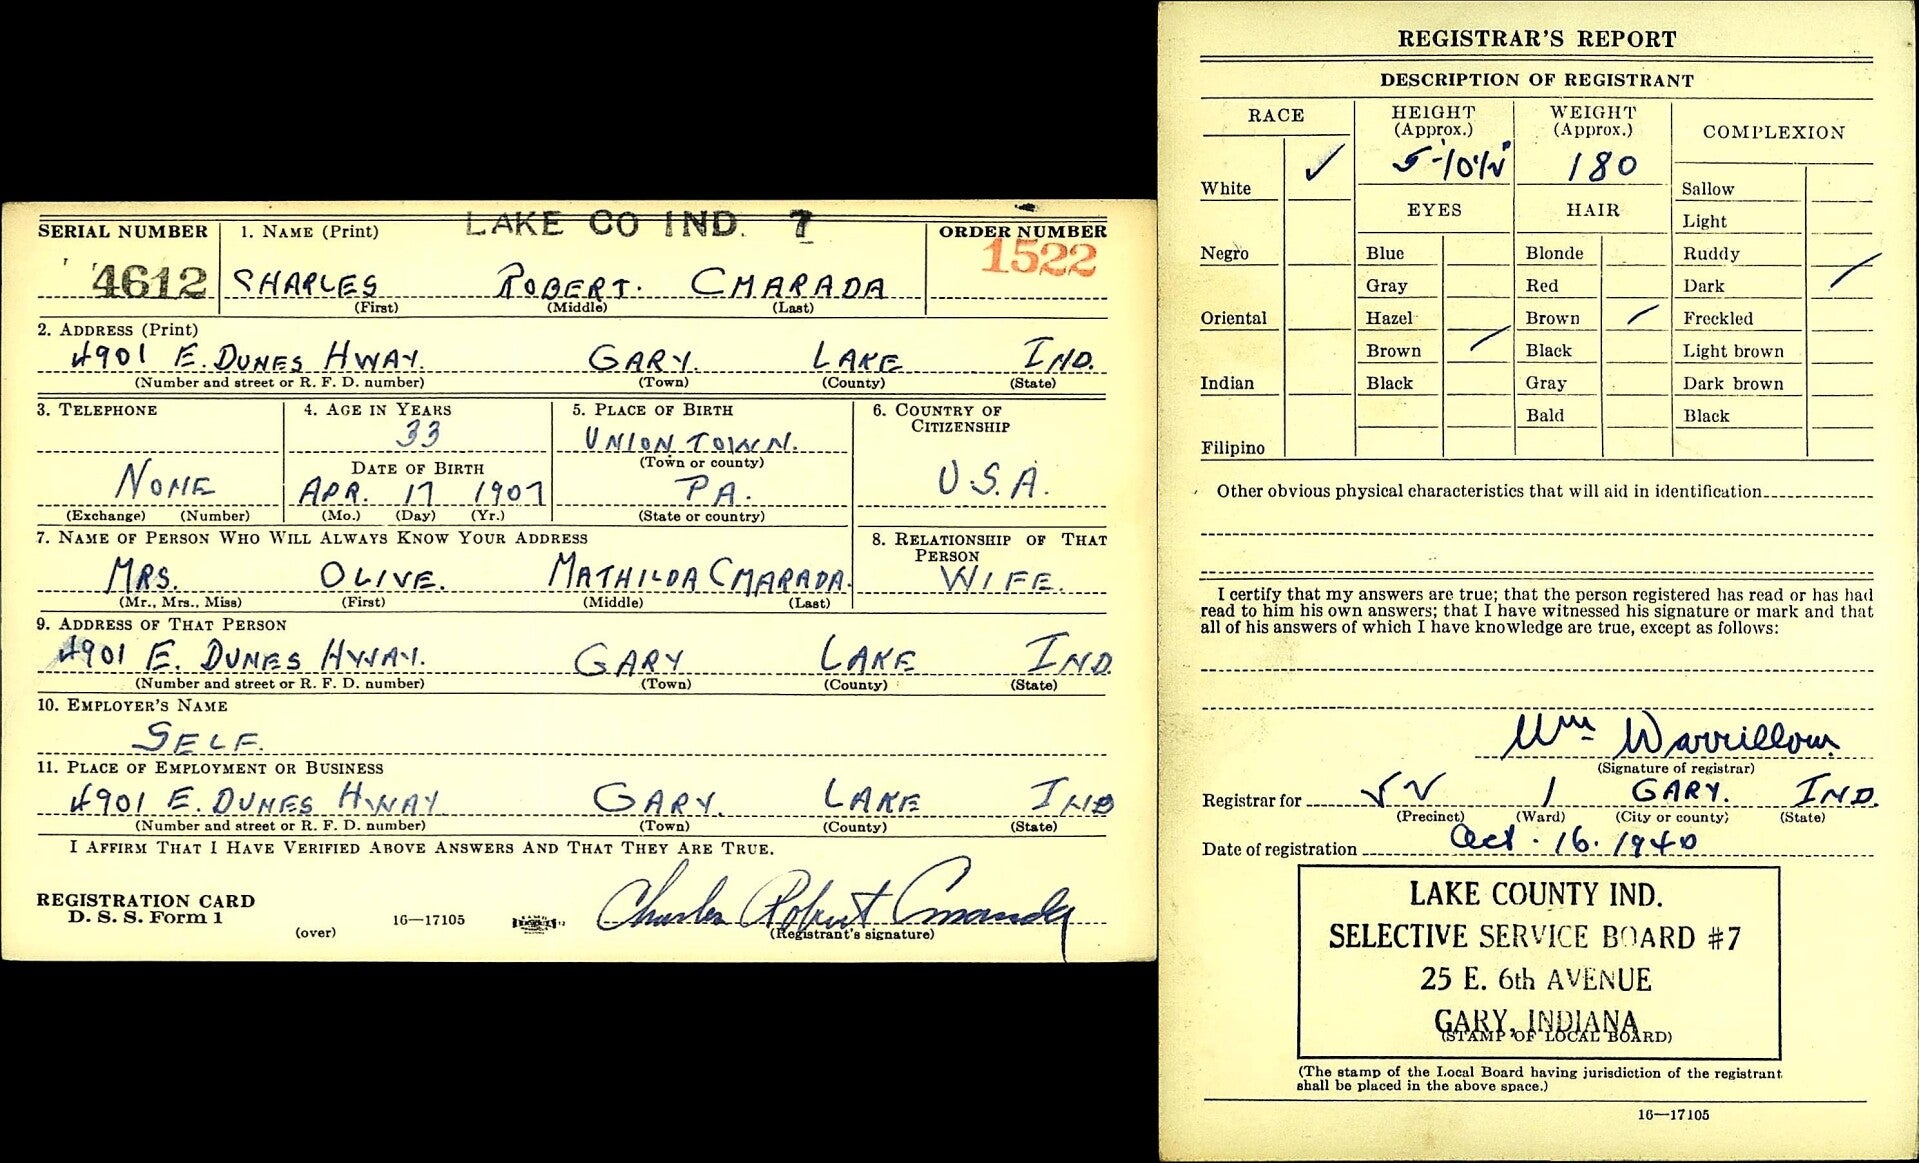 LAKE CO IND. 7
SERIAL NUMBER 1. NAME (Print) ORDER NUMBER
4612 CHARLES ROBERT. CMARADA 1522
(First) (Middle) (Last)
2. ADDRESS (Print)
4901 E. DUNES HWAY. GARY. LAKE IND.
(Number and street or R. F. D. number) (Town) (County) (State)
3. TELEPHONE 4. AGE IN YEARS 5. PLACE OF BIRTH 6. COUNTRY OF CITIZENSHIP
33 UNION TOWN.
DATE OF BIRTH (Town or county)
NONE APR. 17 1907 PA. U.S.A.
(Exchange) (Number) (Mo.) (Day) (Yr.) (State or country)
7. NAME OF PERSON WHO WILL ALWAYS KNOW YOUR ADDRESS 8. RELATIONSHIP OF THAT PERSON
MRS. OLIVE. MATHILDA CMARADA. WIFE.
(Mr., Mrs., Miss) (First) (Middle) (Last)
9. ADDRESS OF THAT PERSON
4901 E. DUNES HWAY. GARY LAKE IND
(Number and street or R. F. D. number) (Town) (County) (State)
10. EMPLOYER'S NAME
SELF.
11. PLACE OF EMPLOYMENT OR BUSINESS
4901 E. DUNES HWAY GARY. LAKE IND
(Number and street or R. F. D. number) (Town) (County) (State)
I AFFIRM THAT I HAVE VERIFIED ABOVE ANSWERS AND THAT THEY ARE TRUE.
REGISTRATION CARD
D. S. S. Form 1 16—17105 Charles Robert Cmarada
(over) (Registrant's signature)
REGISTRAR'S REPORT
DESCRIPTION OF REGISTRANT
RACE HEIGHT (Approx.) WEIGHT (Approx.) COMPLEXION
White ✓ 5'-10½" 180 Sallow
EYES HAIR Light
Negro Blue Blonde Ruddy
Gray Red Dark /
Oriental Hazel Brown / Freckled
Brown / Black Light brown
Indian Black Gray Dark brown
Bald Black
Filipino
Other obvious physical characteristics that will aid in identification
I certify that my answers are true; that the person registered has read or has had
read to him his own answers; that I have witnessed his signature or mark and that
all of his answers of which I have knowledge are true, except as follows:
Wm Warrillow.
(Signature of registrar)
Registrar for 1 GARY. IND.
(Precinct) (Ward) (City or county) (State)
Date of registration Oct. 16. 1940
LAKE COUNTY IND.
SELECTIVE SERVICE BOARD #7
25 E. 6th AVENUE
GARY, INDIANA
(STAMP OF LOCAL BOARD)
(The stamp of the Local Board having jurisdiction of the registrant
shall be placed in the above space.)
16—17105